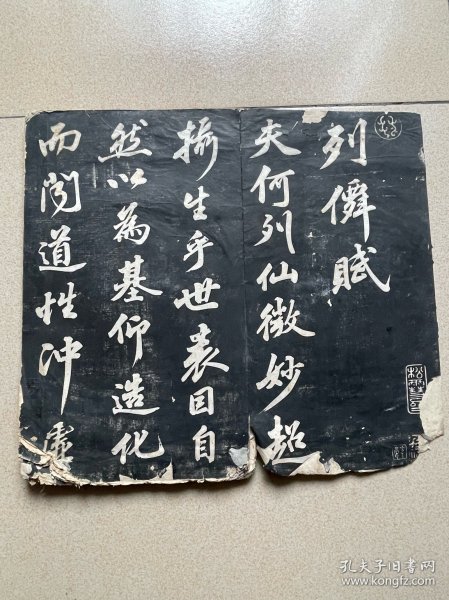 列僊賦
夫何列仙微妙超
攝生乎世表因自
然以為基仰造化
而闶道性冲虛
孔夫子旧书网
www.kongfz.com